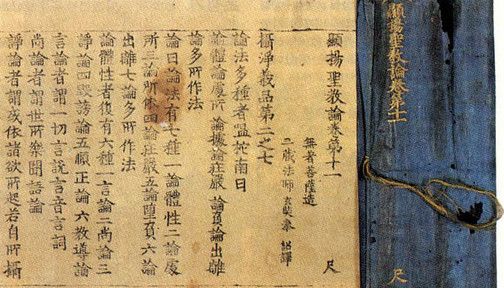 顯揚聖教論卷第十一
尺
顯揚聖教論卷第十一 尺
無著菩薩造
三藏法師玄奘奉 詔譯
攝淨義品第二之七
論法多種者嗢柁南曰
論體論處所 論據論莊嚴 論負論出離
論多所作法
論曰論法有七種一論體性二論處
所三論所依四論莊嚴五論墮負六論
出離七論多所作法
論體性者復有六種一言論二尚論三
諍論四毀謗論五順正論六教導論
言論者謂一切言說言音言詞
尚論者謂世所樂聞語論
諍論者謂或依諸欲所起若自所攝